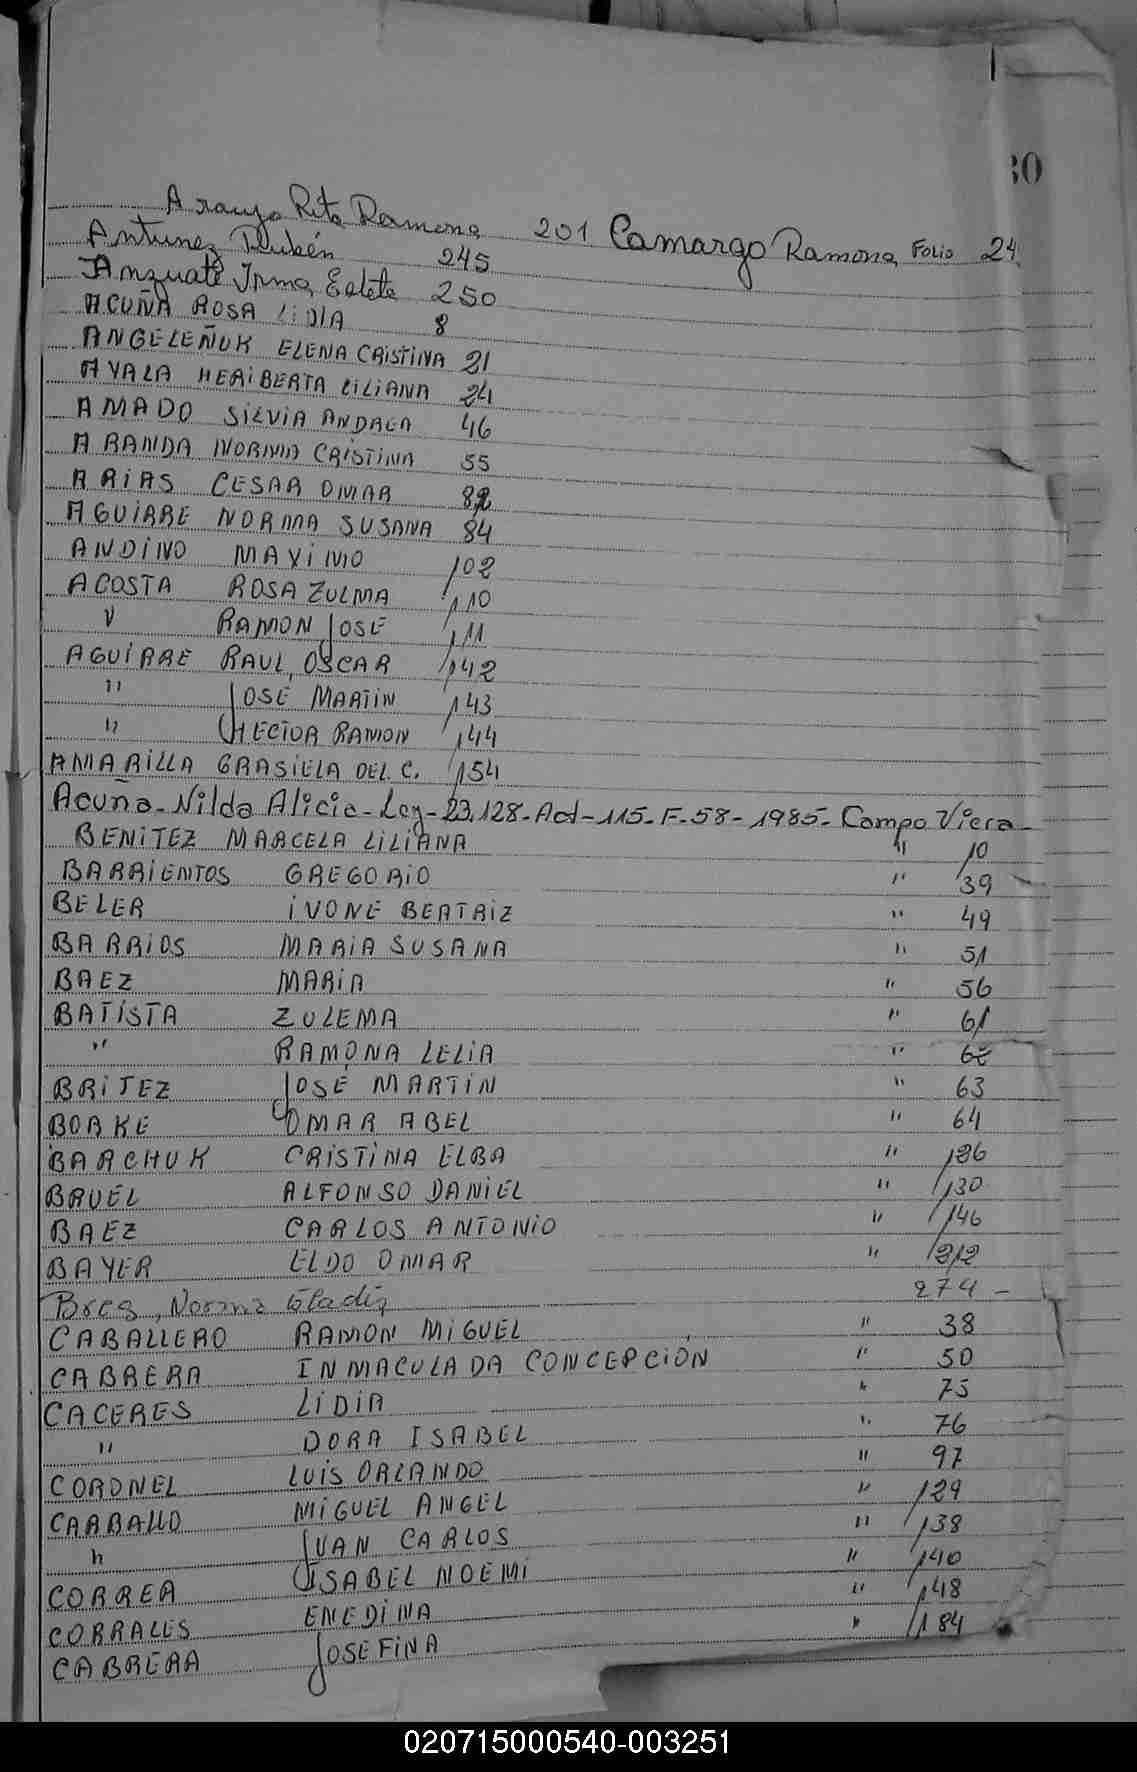 30
Araujo Rita Ramona 201 Camargo Ramona Folio 24
Antunez Rubén 245
Anzuate Irma Estete 250
ACUÑA ROSA LIDIA 8
ANGELEÑUK ELENA CRISTINA 21
AYALA HERIBERTA LILIANA 24
AMADO SILVIA ANDREA 46
ARANDA NORMA CRISTINA 55
ARIAS CESAR OMAR 82
AGUIRRE NORMA SUSANA 84
ANDINO MAXIMO 102
ACOSTA ROSA ZULMA 110
" RAMON JOSE 111
AGUIRRE RAUL OSCAR 142
" JOSE MARTIN 143
" HECTOR RAMON 144
AMARILLA GRASIELA DEL C. 154
Acuña - Nilda Alicia - Ley - 23.128 - Act - 115 - F - 58 - 1985 - Campo Viera -
BENITEZ MARCELA LILIANA " 10
BARRIENTOS GREGORIO " 39
BELER IVONE BEATRIZ " 49
BARRIOS MARIA SUSANA " 51
BAEZ MARIA " 56
BATISTA ZULEMA " 61
" RAMONA LELIA " 62
BRITEZ JOSÉ MARTIN " 63
BORKE OMAR ABEL " 64
BARCHUK CRISTINA ELBA " 126
BRUEL ALFONSO DANIEL " 130
BAEZ CARLOS ANTONIO " 146
BAYER ELDO OMAR " 212
Bres, Norma Gladis 274 -
CABALLERO RAMON MIGUEL " 38
CABRERA INMACULADA CONCEPCIÓN " 50
CACERES LIDIA " 75
" DORA ISABEL " 76
CORONEL LUIS ORLANDO " 97
CARBALLO MIGUEL ANGEL " 129
" JUAN CARLOS " 138
CORREA ISABEL NOEMI " 140
CORRALES ENEDINA " 148
CABRERA JOSEFINA " 184
020715000540-003251